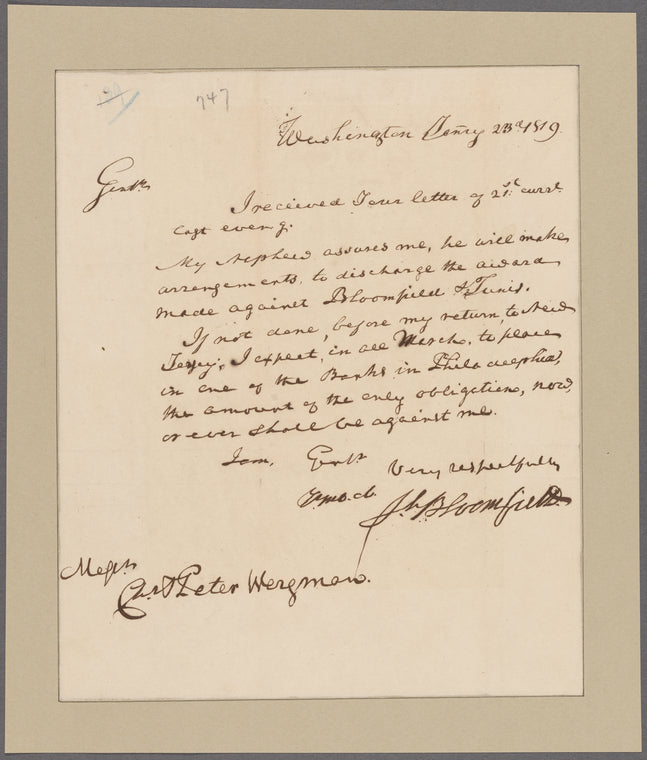 747
Washington Jan'y 23d 1819.
Gentn
I recieved Your letter of 21st curr.t
last eveng.
My Nephew assures me, he will make
arrangements, to discharge the award
made against Bloomfield & Tunis.
If not done, before my return, to New
Jersey; I expect, in all March, to place
in one of the Banks in Philadelphia,
the amount of the only obligation, now,
or ever shall be against me.
I am, Gentn Very respectfully
Jh. Bloomfield.
Messrs
Chs & Peter Wergman.